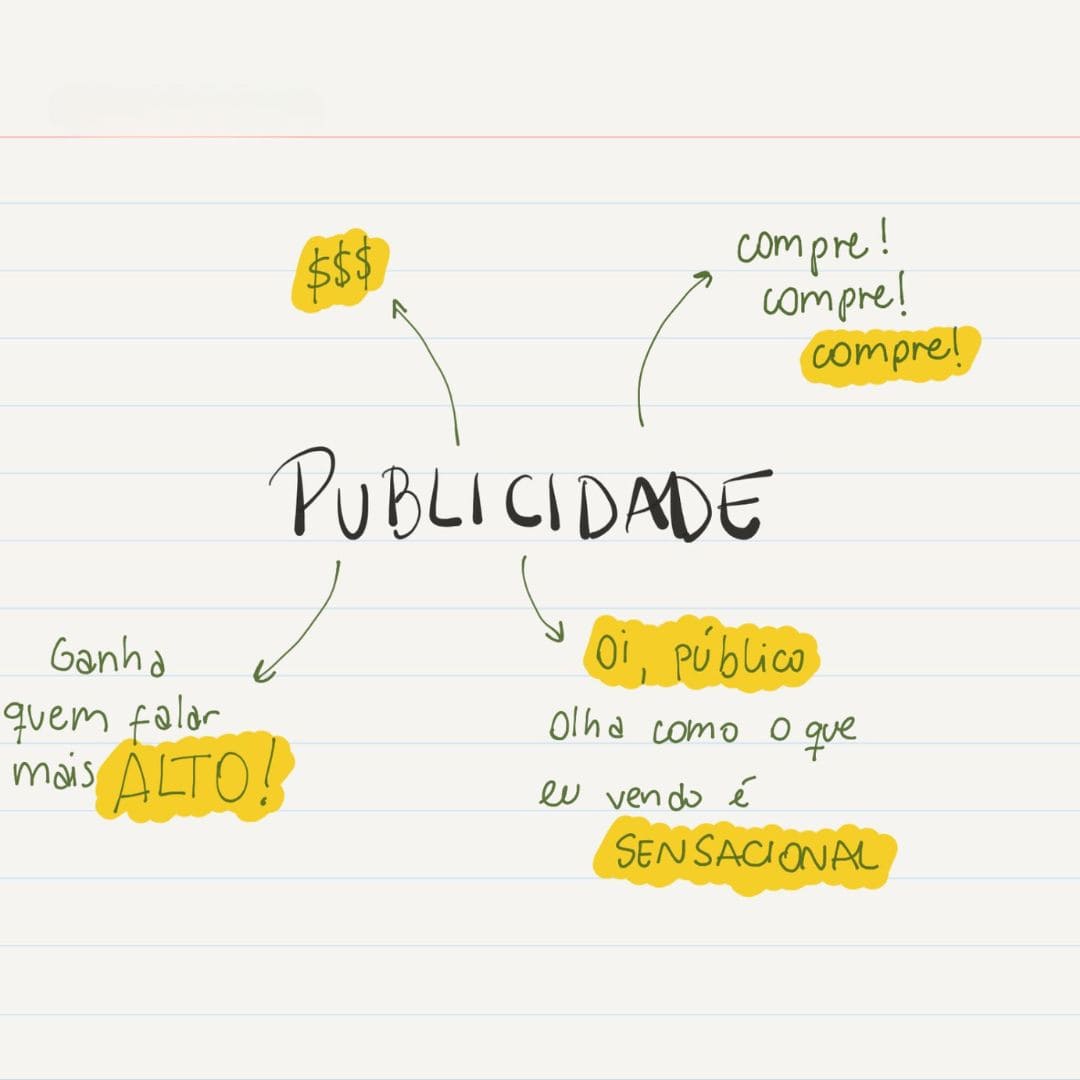 $$$
compre!
compre!
compre!
PUBLICIDADE
Ganha
quem falar
mais ALTO!
Oi, público
Olha como o que
eu vendo é
SENSACIONAL